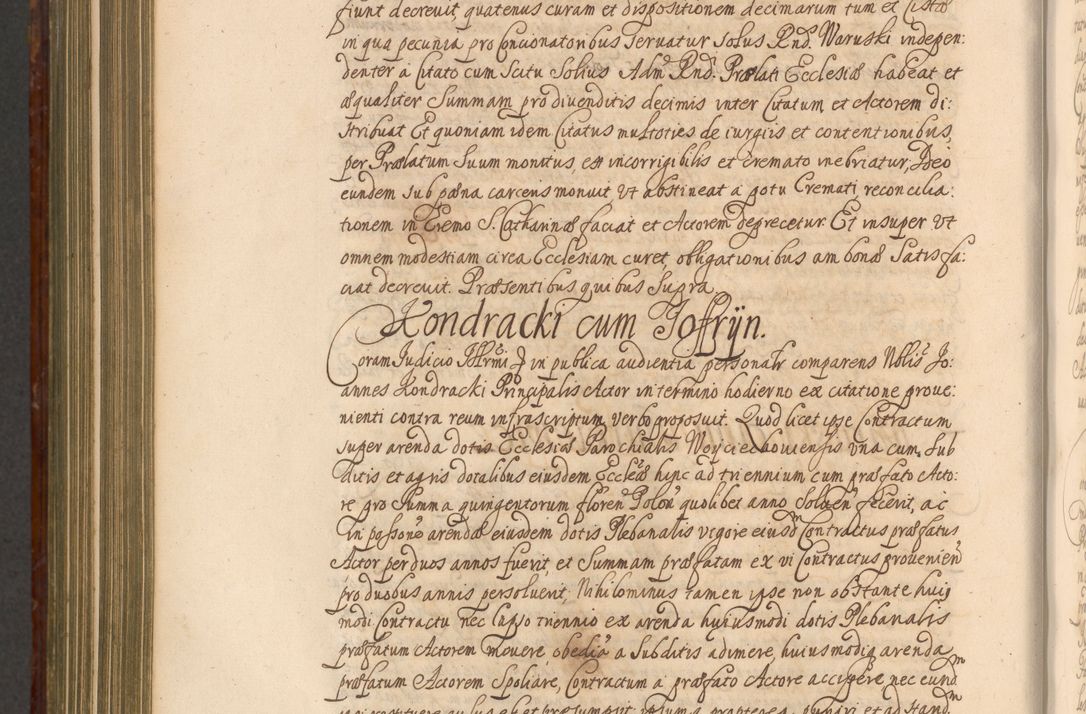 fiunt decrevit, quatenus curam et dispositionem decimarum tum et Cistæ
in qua pecunia pro Concionatoribus servatur solus Rnd. Waruski indepen:
denter a Citato cum Scitu Solius Adm Rnd. Prælati Ecclesiæ habeat et
æqualiter Summam pro divenditis decimis inter Citatum et Actorem di:
stribuat Et quoniam idem Citatus multoties de iurgiis et contentionibus,
per Prælatum Suum monitus, est incorrigibilis et cremato inebriatur, Ideo
eundem sub pæna carceris monuit, Vt abstineat a potu Cremati, reconcilia:
tionem in Eremo S. Catharinæ faciat et Actorem deprecetur. Et insuper Vt
omnem modestiam circa Ecclesiam curet obligationibus ambonæ Satisfa:
ciat decrevit. Præsentibus quibus Supra.
Kondracki cum Joffrÿn.
Coram Judicio Illrmi in publica audientia personalr comparens Nblis Jo:
annes Kondracki Principalis Actor in termino hodierno ex citatione prove:
nienti contra reum infrascriptum verbo proposuit. Quod licet ipse Contractum
super arenda dotis Ecclesiæ Parochialis Woyciechoviensis una cum Sub
ditis et agris dotalibus eiusdem Ecclæ hinc ad triennium cum præfato Acto:
re pro Summa quingentorum floren Polon quolibet anno Solven fecerit, ac
in possone arendæ eiusdem dotis Plebanalis vigore eiusd Contractus præfatus
Actor per duos annos fuerit, et Summam præfatam ex vi Contractus provenien
pro duobus annis persolverit; Nihilominus tamen ipse non obstante huius
modi Contractu nec lapso triennio ex arenda huiusmodi dotis Plebanalis
præfatum Actorem movere, obedia a Subditis adimere, huiusmodiq arenda
præfatum Actorem Spoliare, Contractum a præfato Actore accipere nec eund